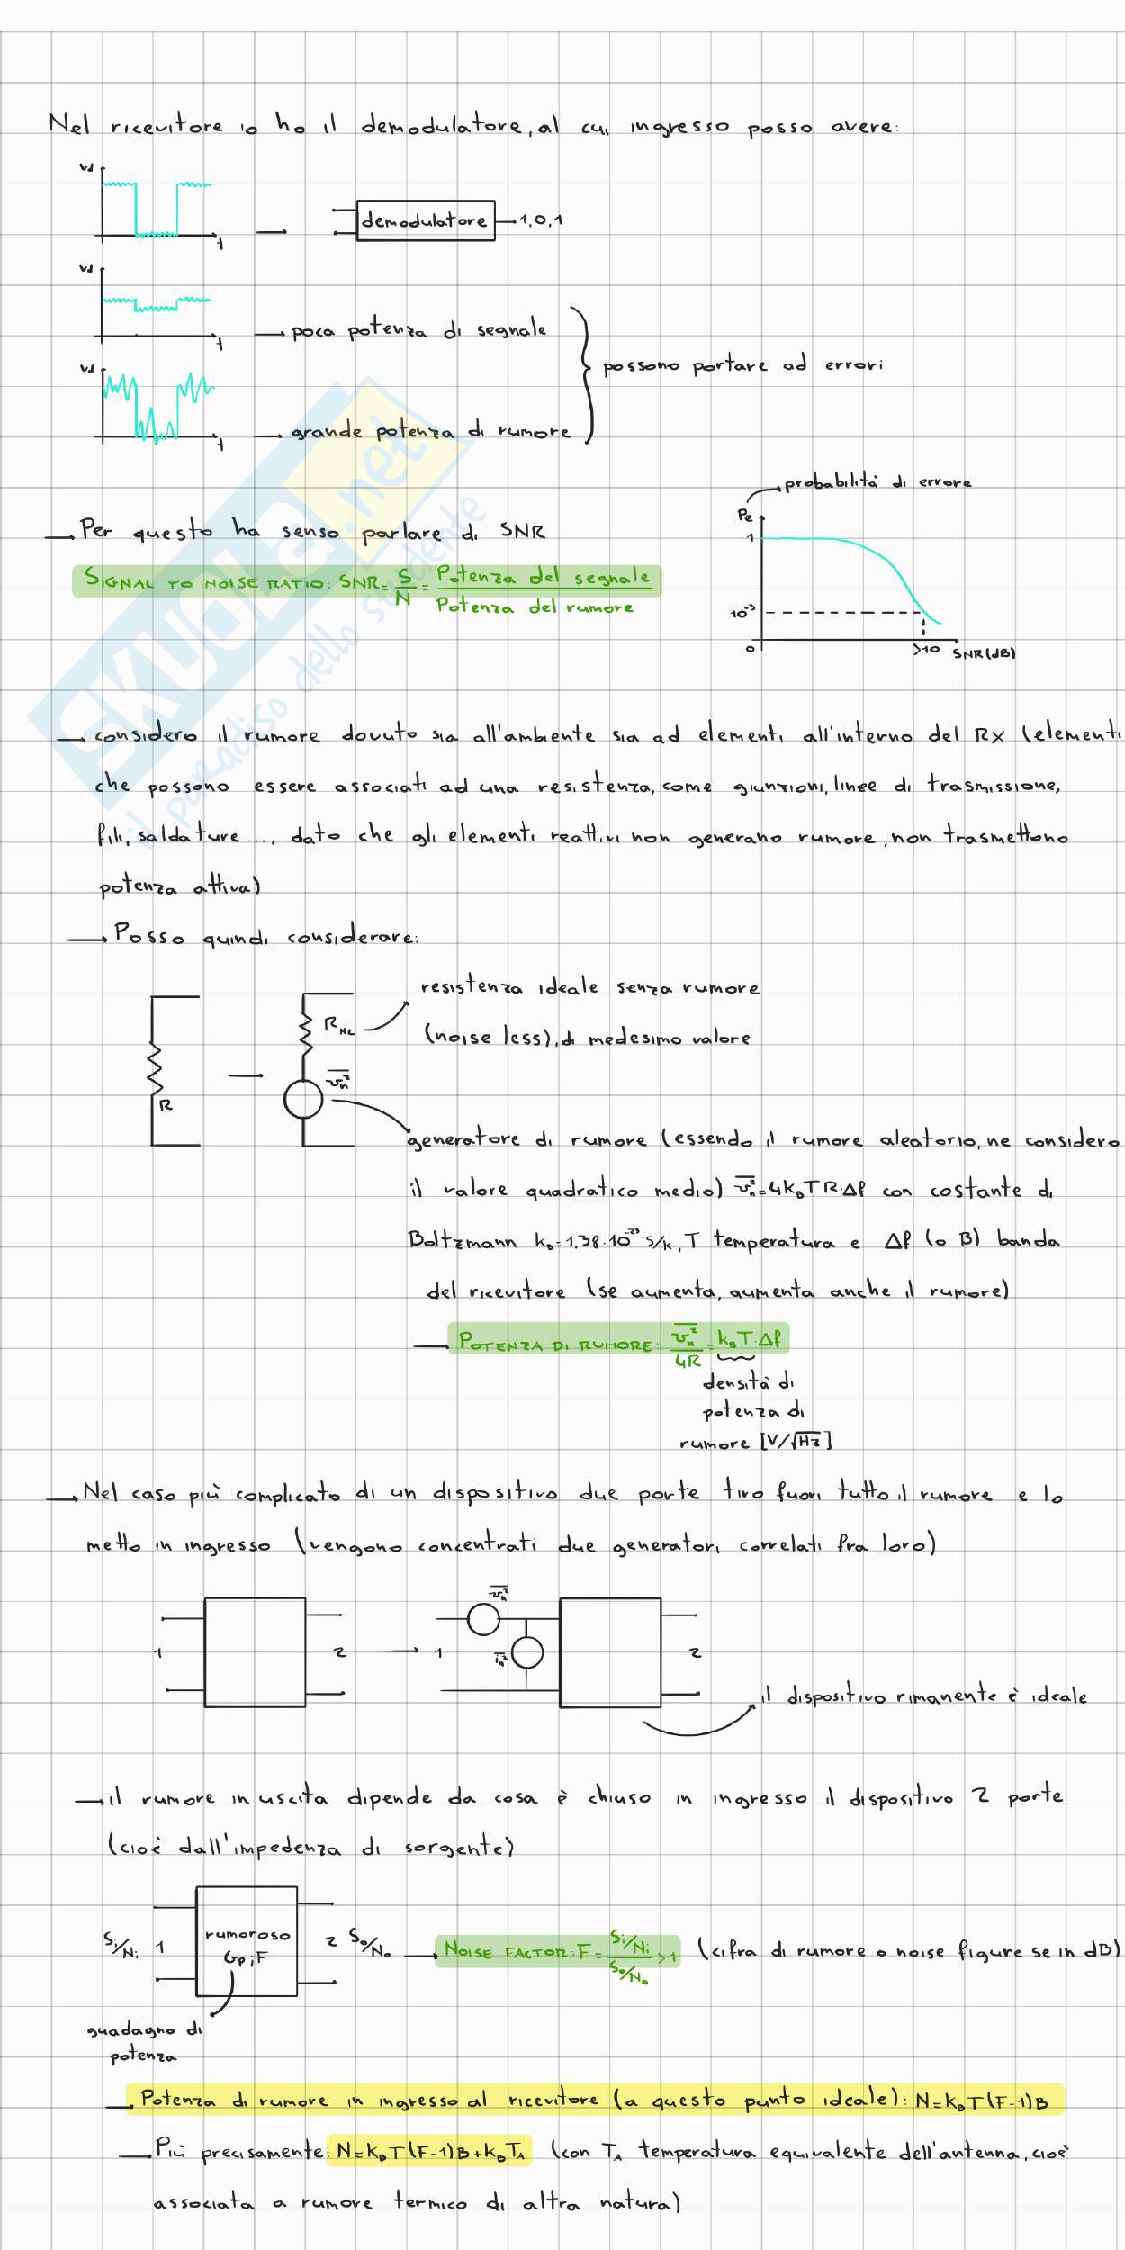 Nel ricevitore io ho il demodulatore, al cui ingresso posso avere:
vd
t
demodulatore
1,0,1
vd
t
poca potenza di segnale
possono portare ad errori
vd
t
grande potenza di rumore
probabilità di errore
Pe
1
10⁻³
0
>10
SNR(dB)
Per questo ha senso parlare di SNR
SIGNAL TO NOISE RATIO: SNR = S/N = Potenza del segnale / Potenza del rumore
considero il rumore dovuto sia all'ambiente sia ad elementi all'interno del Rx (elementi
che possono essere associati ad una resistenza, come giunzioni, linee di trasmissione,
fili, saldature ..., dato che gli elementi reattivi non generano rumore, non trasmettono
potenza attiva)
Posso quindi considerare:
resistenza ideale senza rumore
(noise less), di medesimo valore
R
R_NL
v_n²
generatore di rumore (essendo il rumore aleatorio, ne considero
il valore quadratico medio) v_n² = 4k_bTR·Δf con costante di
Boltzmann k_b = 1,38·10⁻²³ J/K, T temperatura e Δf (o B) banda
del ricevitore (se aumenta, aumenta anche il rumore)
POTENZA DI RUMORE: v_n²/4R = k_bT·Δf
densità di
potenza di
rumore [V/√Hz]
Nel caso più complicato di un dispositivo due porte tiro fuori tutto il rumore e lo
metto in ingresso (vengono concentrati due generatori correlati fra loro)
1
2
1
v_n²
i_n²
2
il dispositivo rimanente è ideale
il rumore in uscita dipende da cosa è chiuso in ingresso il dispositivo 2 porte
(cioè dall'impedenza di sorgente)
Si/Ni 1
rumoroso
Gp,F
2 So/No
NOISE FACTOR: F = Si/Ni / So/No >1 (cifra di rumore o noise figure se in dB)
guadagno di
potenza
Potenza di rumore in ingresso al ricevitore (a questo punto ideale): N=k_bT(F-1)B
Più precisamente: N=k_bT(F-1)B+k_bT_A (con T_A temperatura equivalente dell'antenna, cioè
associata a rumore termico di altra natura)
SKUOLA.net
il paradiso dello studente